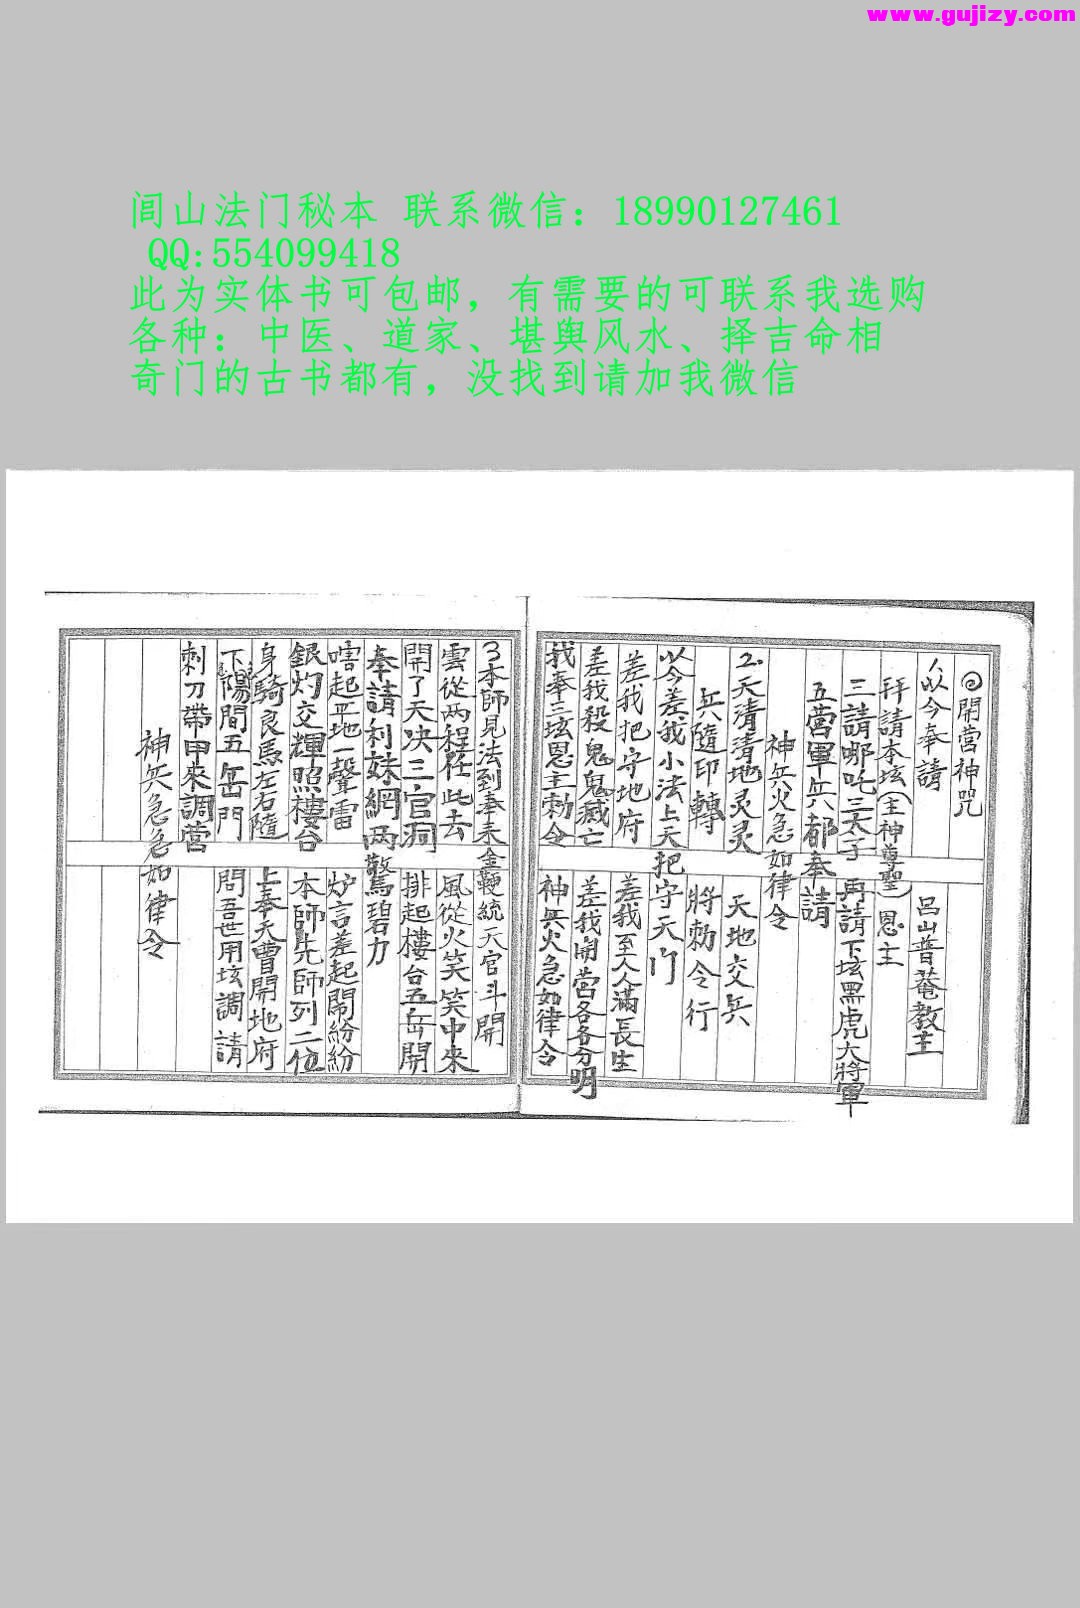 www.gujizy.com
闾山法门秘本 联系微信：18990127461
QQ:554099418
此为实体书可包邮，有需要的可联系我选购
各种：中医、道家、堪舆风水、择吉命相
奇门的古书都有，没找到请加我微信
開營神咒
以今奉請 呂山普菴教主
拜請本垓（主神尊聖）恩主
三請哪吒三太子 再請下垓黑虎大將軍
五營軍兵都奉請
神兵火急如律令
2.天清清地灵灵 天地交兵
兵隨印轉 將勅令行
以今差我小法上天把守天门
差我把守地府 差我至人人滿長生
差我殺鬼鬼滅亡 差我開营各各分明
找奉三垓恩主勅令 神兵火急如律令
3本師見法到奉未金鞭統天官斗開
雲從两程任此去 風從火笑笑中來
開了天决三官洞 排起樓台五岳開
奉請利妹網两驚碧力
嘻起平地一聲雷 炉言差起鬧紛紛
銀灼交輝照樓台 本師先師列二位
身騎良馬左右隨 上奉天曹開地府
下陽間五岳門 問吾世用垓調請
刺刀帶甲來調营
神兵急急如律令